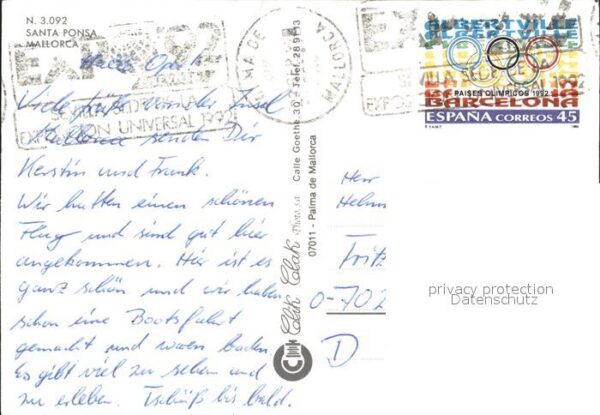 N. 3.092
SANTA PONSA
MALLORCA
EXPO'92
SEVILLA SEDE
EXPOSICION UNIVERSAL 1992
PALMA DE MALLORCA
ALBERTVILLE
PAISES OLIMPICOS 1992
BARCELONA
ESPAÑA CORREOS 45
Viele Grüße von der Insel
Mallorca senden Dir
Kerstin und Frank.
Wir hatten einen schönen
Flug und sind gut hier
angekommen. Hier ist es
ganz schön und wir haben
schon eine Bootsfahrt
gemacht und waren baden
Es gibt viel zu sehen und
zu erleben. Tschüß bis bald.
Clik Clak Photo s.a.
Calle Goethe 30 - Telef. 28 91 13
07011 - Palma de Mallorca
Herr
Helm
Fritz
O-702
D
privacy protection
Datenschutz